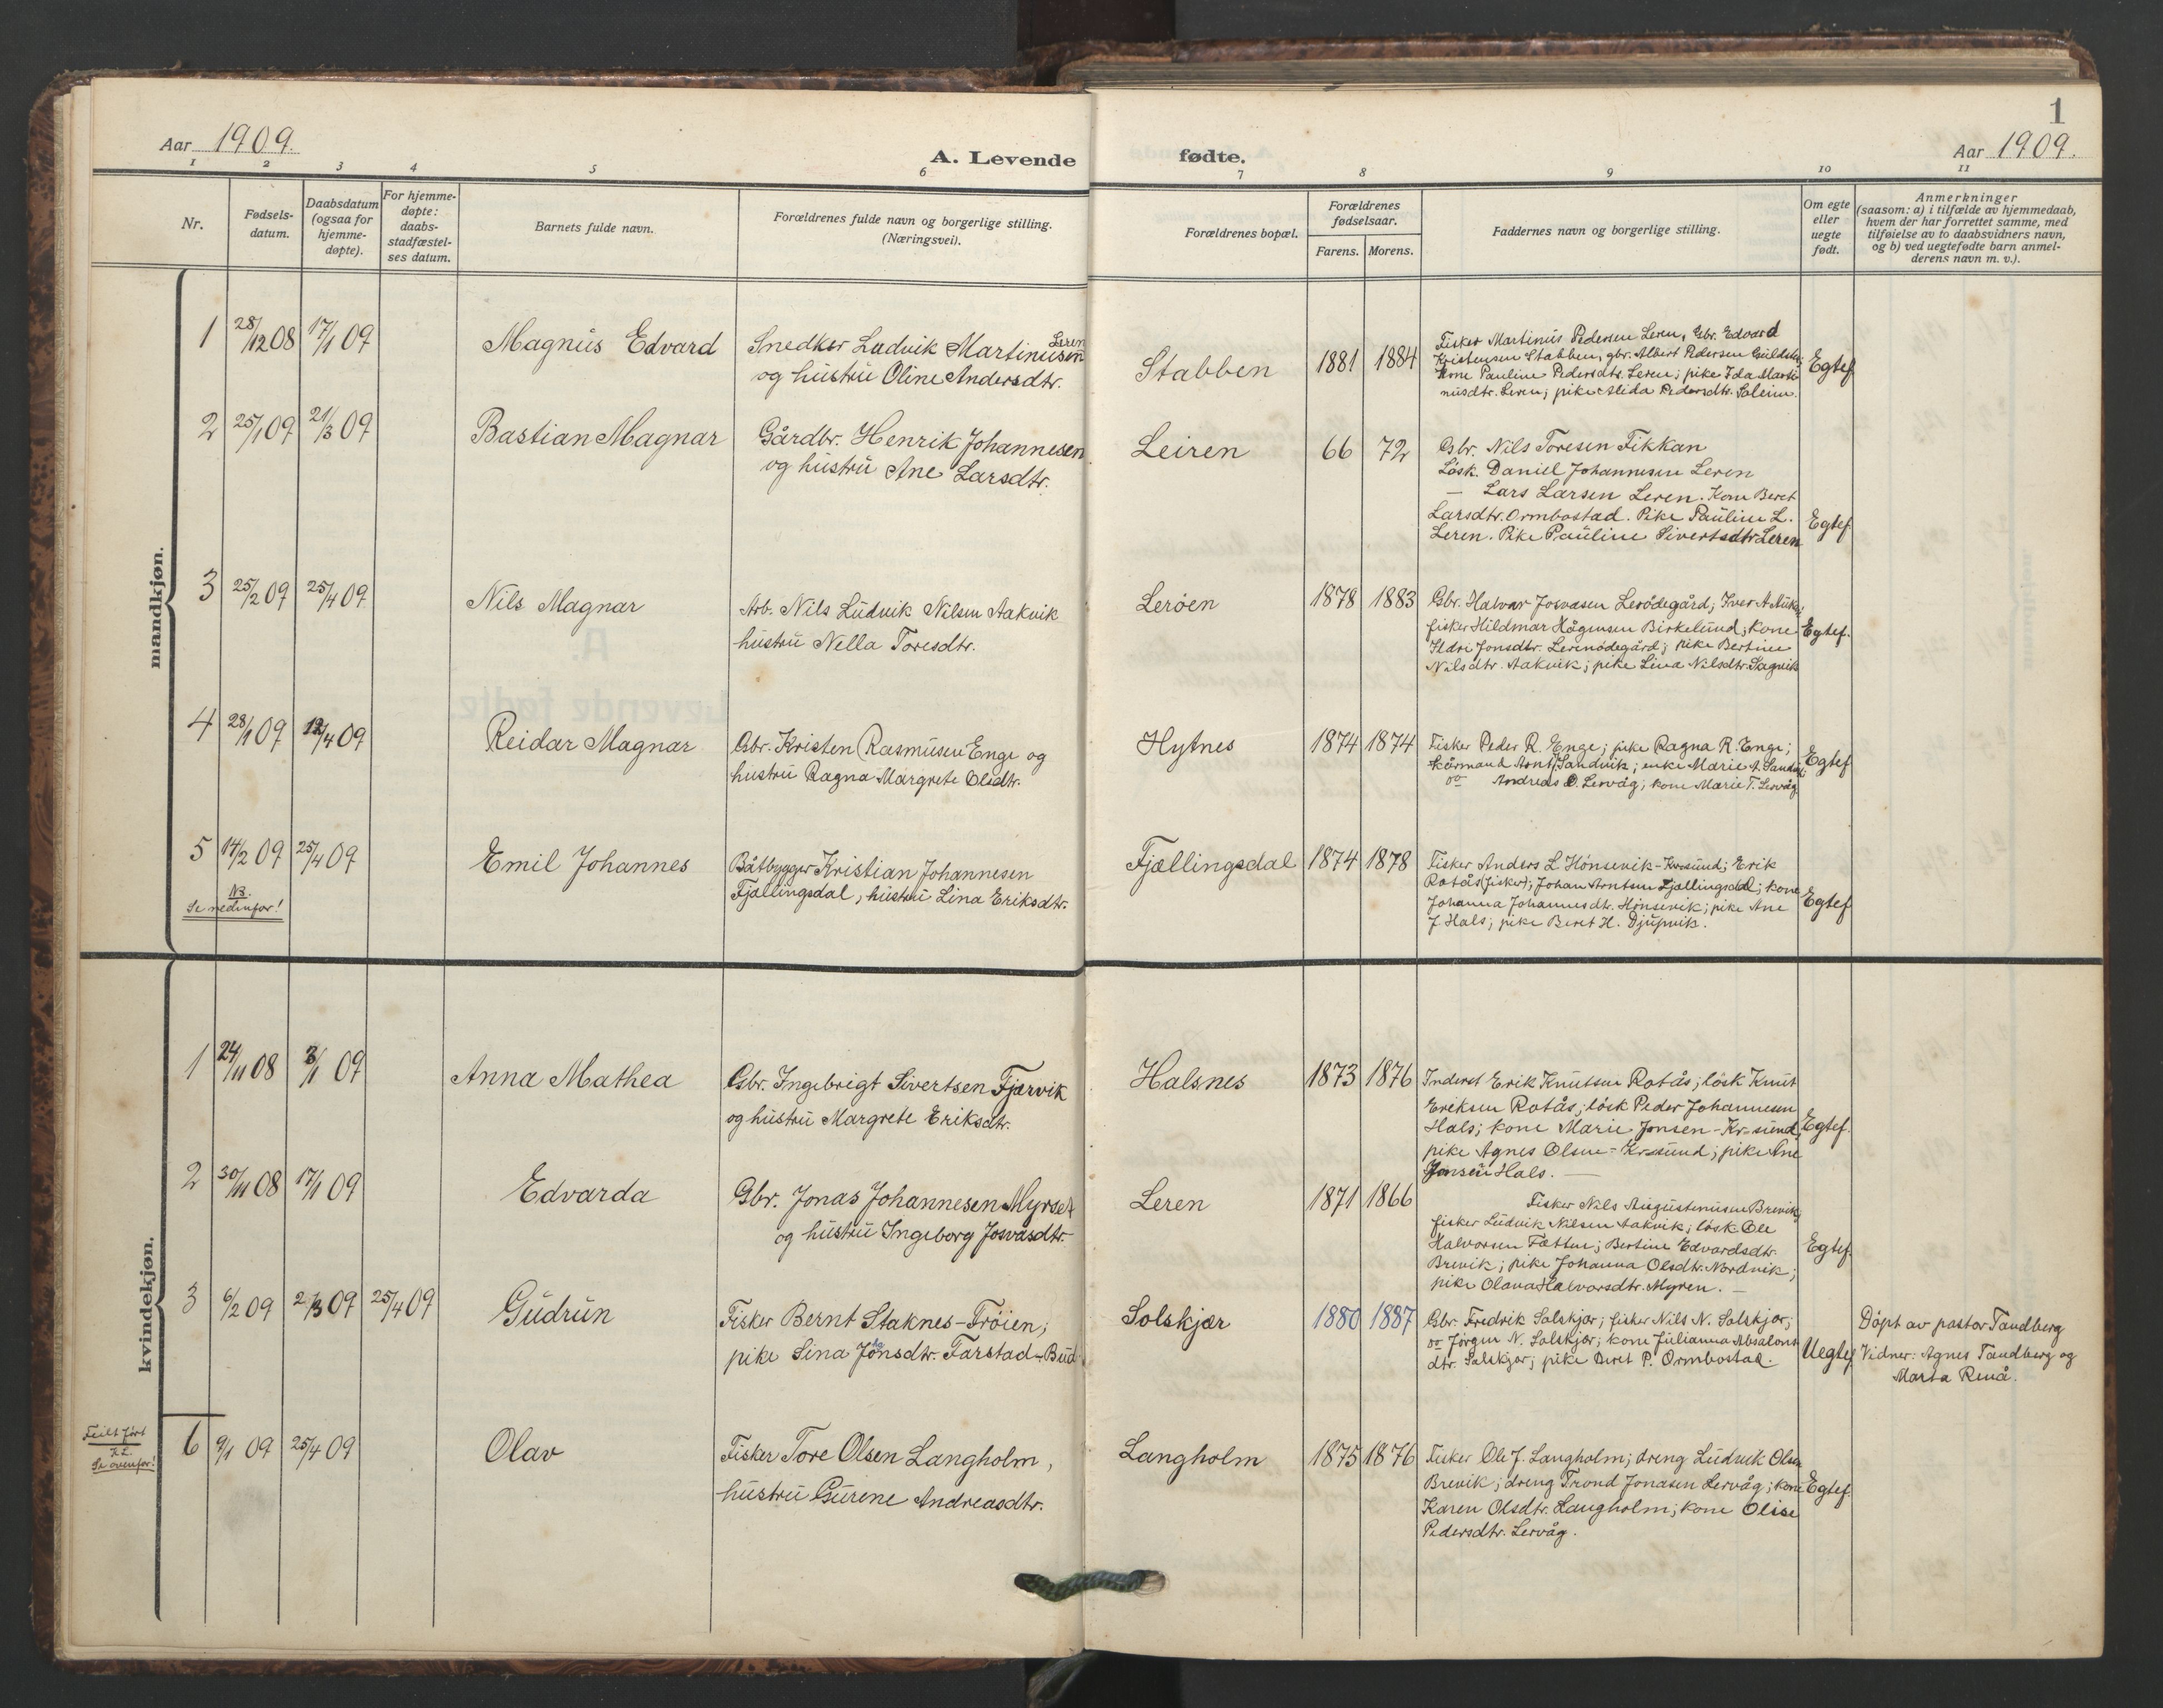 1
Aar 1909.
A. Levende fødte.
Aar 1909.
1 2 3 4 5 6 7 8 9 10 11
Nr.
Fødsels-
datum.
Daabsdatum
(ogsaa for
hjemme-
døpte).
For hjemme-
døpte:
daabs-
stadfæstel-
ses datum.
Barnets fulde navn.
Forældrenes fulde navn og borgerlige stilling.
(Næringsvei).
Forældrenes bopæl.
Forældrenes
fødselsaar.
Farens. Morens.
Faddernes navn og borgerlige stilling.
Om egte
eller
uegte
født.
Anmerkninger
(saasom: a) i tilfælde av hjemmedaab,
hvem der har forrettet samme, med
tilføielse av to daabsvidners navn,
og b) ved uegtefødte barn anmel-
derens navn m. v.).
mandkjøn.
1 28/12 08 17/1 09
Magnus Edvard
Leren
Snedker Ludvik Martinusen
og hustru Oline Andersdtr.
Stabben 1881 1884
Fisker Martinus Pedersen Leren, Gbr. Edvard
Kristensen Stabben, gbr. Albert Pedersen
Kone Pauline Pedersdtr. Leren; pike Ida Marti-
nusdtr. Leren; pike Alida Pedersdtr. Soleim.
Egtef.
2 25/1 09 21/3 09
Bastian Magnar
Gårdbr. Henrik Johannesen
og hustru Ane Larsdtr.
Leiren 66 72
Gbr. Nils Toresen Fikkan
Løsk. Daniel Johannesen Leren
— Lars Larsen Leren. Kone Beret
Larsdtr. Ormbostad. Pike Pauline L.
Leren. Pike Pauline Sivertsdtr. Leren
Egtef.
3 25/2 09 25/4 09.
Nils Magnar
Arb. Nils Ludvik Nilsen Aakvik
hustru Nella Toresdtr.
Lerøen 1878 1883
Gbr. Halvar Josvasen Lerødegård; Iver A.
fisker Hildmar Hågensen Birkelund; kone
Ildri Jonsdtr. Lerenødegård; pike Bertine
Nilsdtr. Aakvik; pike Lina Nilsdtr. Sagvik
Egtef.
4 28/1 09 12/4 09
Reidar Magnar
Gbr. Kristen Rasmusen Enge og
hustru Ragna Margrete Olsdtr.
Hytnes 1874 1874
Fisker Peder R. Enge; pike Ragna R. Enge;
kårmand Arnt Sandvik; enke Marie A. Sandvik;
Andreas O. Lervåg; kone Marie T. Lervåg
Egtef
5 14/2 09 25/4 09
NB.
Se nedenfor!
Emil Johannes
Båtbygger Kristian Johannesen
Fjællingsdal, hustru Lina Eriksdtr.
Fjællingsdal 1874 1878
Fisker Anders L Hønsevik-Kr.sund; Erik
Rotås (fisker); Johan Arntsen Fjællingsdal; kone
Johanna Johannesdtr. Hønsevik; pike Ane
J Hals; pike Beret H. Djupvik.
Egtef
kvindekjøn.
1 24/11 08 3/1 09
Anna Mathea
Gbr. Ingebrigt Sivertsen Fjærvik
og hustru Margrete Eriksdtr.
Halsnes 1873 1876
Inderst Erik Knutsen Rotås; løsk Knut
Eriksen Rotås; løsk Peder Johannesen
Hals; kone Marie Jonsen - Kr=sund,
pike Agnes Olsen - Kr=sund; pike Ane
Jonsen Hals. —
Egtef.
2 30/11 08 17/1 09
Edvarda
Gbr. Jonas Johannesen Myrset
og hustru Ingeborg Josvasdtr.
Leren 1871 1866
Fisker Nils Augustinusen Brevik,
fisker Ludvik Nilsen Aakvik; løsk Ole
Halvorsen Fætten; Bertine Edvardsdtr.
Brevik; pike Johanna Olsdtr. Nordvik;
pike Olava Halvorsdtr. Myren. —
Egtef.
3 6/2 09 21/3 09 25/4 09
Gudrun
Fisker Bernt Staknes-Frøien;
pike Sina Jonsdtr. Farstad - Bud
Solskjær 1880 1887
Gbr. Fredrik Solskjær; fisker Nils N. Solskjær;
Jørgen N. Solskjær; kone Julianna Absalons-
dtr. Solskjær; pike Beret P. Ormbostad.
Uegtef
Døpt av pastor Tandberg
Vidner: Agnes Tandberg og
Marta Renå.
Feilt ført
Se ovenfor!
6 9/1 09 25/4 09
Olav
Fisker Tore Olsen Langholm,
hustru Gurene Andreasdtr.
Langholm 1875 1876
Fisker Ole J. Langholm; dreng Ludvik Olsen
Brevik; dreng Trond Jonasen Lervåg; kone
Karen Olsdtr. Langholm; kone Olise
Pedersdtr. Lervåg.
Egtef.